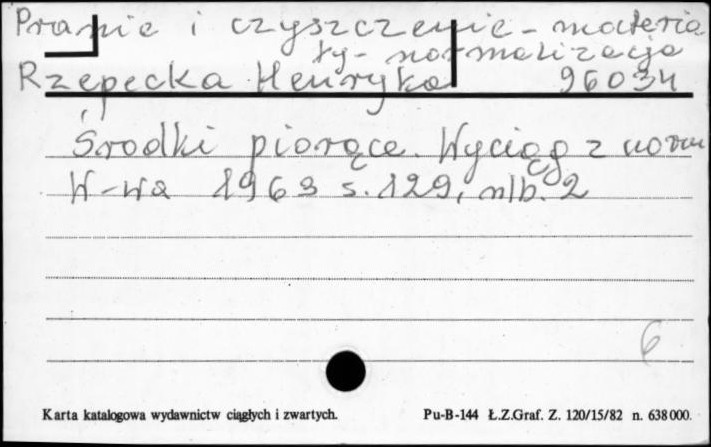 Pranie i czyszczenie - materia
ły - normalizacja
Rzepecka Henryka 96034
Środki piorące. Wyciąg z norm
W-wa 1963 s. 129, nlb. 2
6
Karta katalogowa wydawnictw ciągłych i zwartych. Pu-B-144 Ł.Z.Graf. Z. 120/15/82 n. 638000.